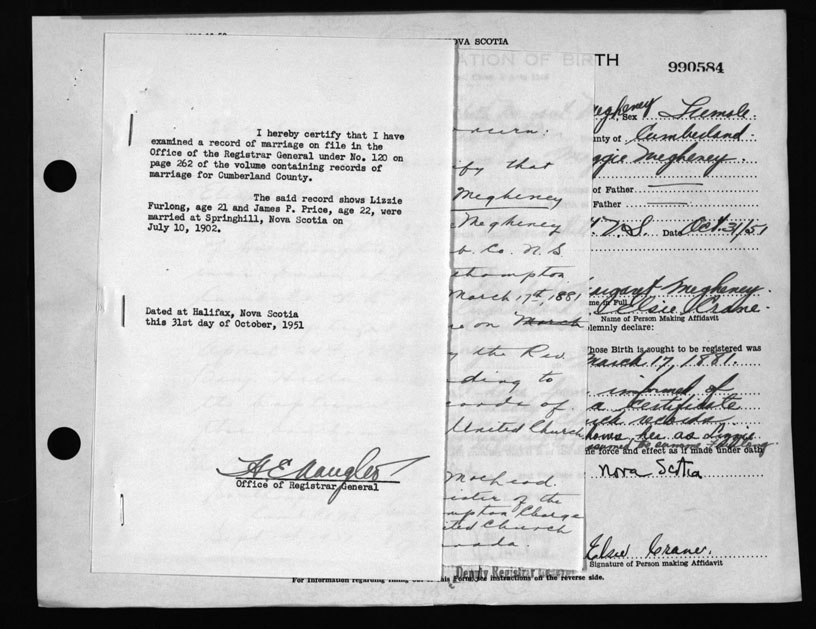 NOVA SCOTIA
TION OF BIRTH
990584
I hereby certify that I have
examined a record of marriage on file in the
Office of the Registrar General under No. 120 on
page 262 of the volume containing records of
marriage for Cumberland County.
The said record shows Lizzie
Furlong, age 21 and James P. Price, age 22, were
married at Springhill, Nova Scotia on
July 10, 1902.
Dated at Halifax, Nova Scotia
this 31st day of October, 1951
Office of Registrar General
that
Megheney
Megheney
Co. N.S.
March 17th, 1881
on March
the Rev.
ding to
of
United Church
ister of the
Charge
Church
Deputy Registrar
Megheney Sex Female
nty of Cumberland
ggie Megheney
of Father
Father
N.S. Date Oct. 31/51
argaret Megheney
me in Full
Elsie Crane
Name of Person Making Affidavit
lemnly declare:
hose Birth is sought to be registered was
March 17, 1881.
informed of
a certificate
records
her as Lizzie
me force and effect as if made under oath
Nova Scotia
Elsie Crane.
Signature of Person making Affidavit
For information regarding filling out this Form, see instructions on the reverse side.